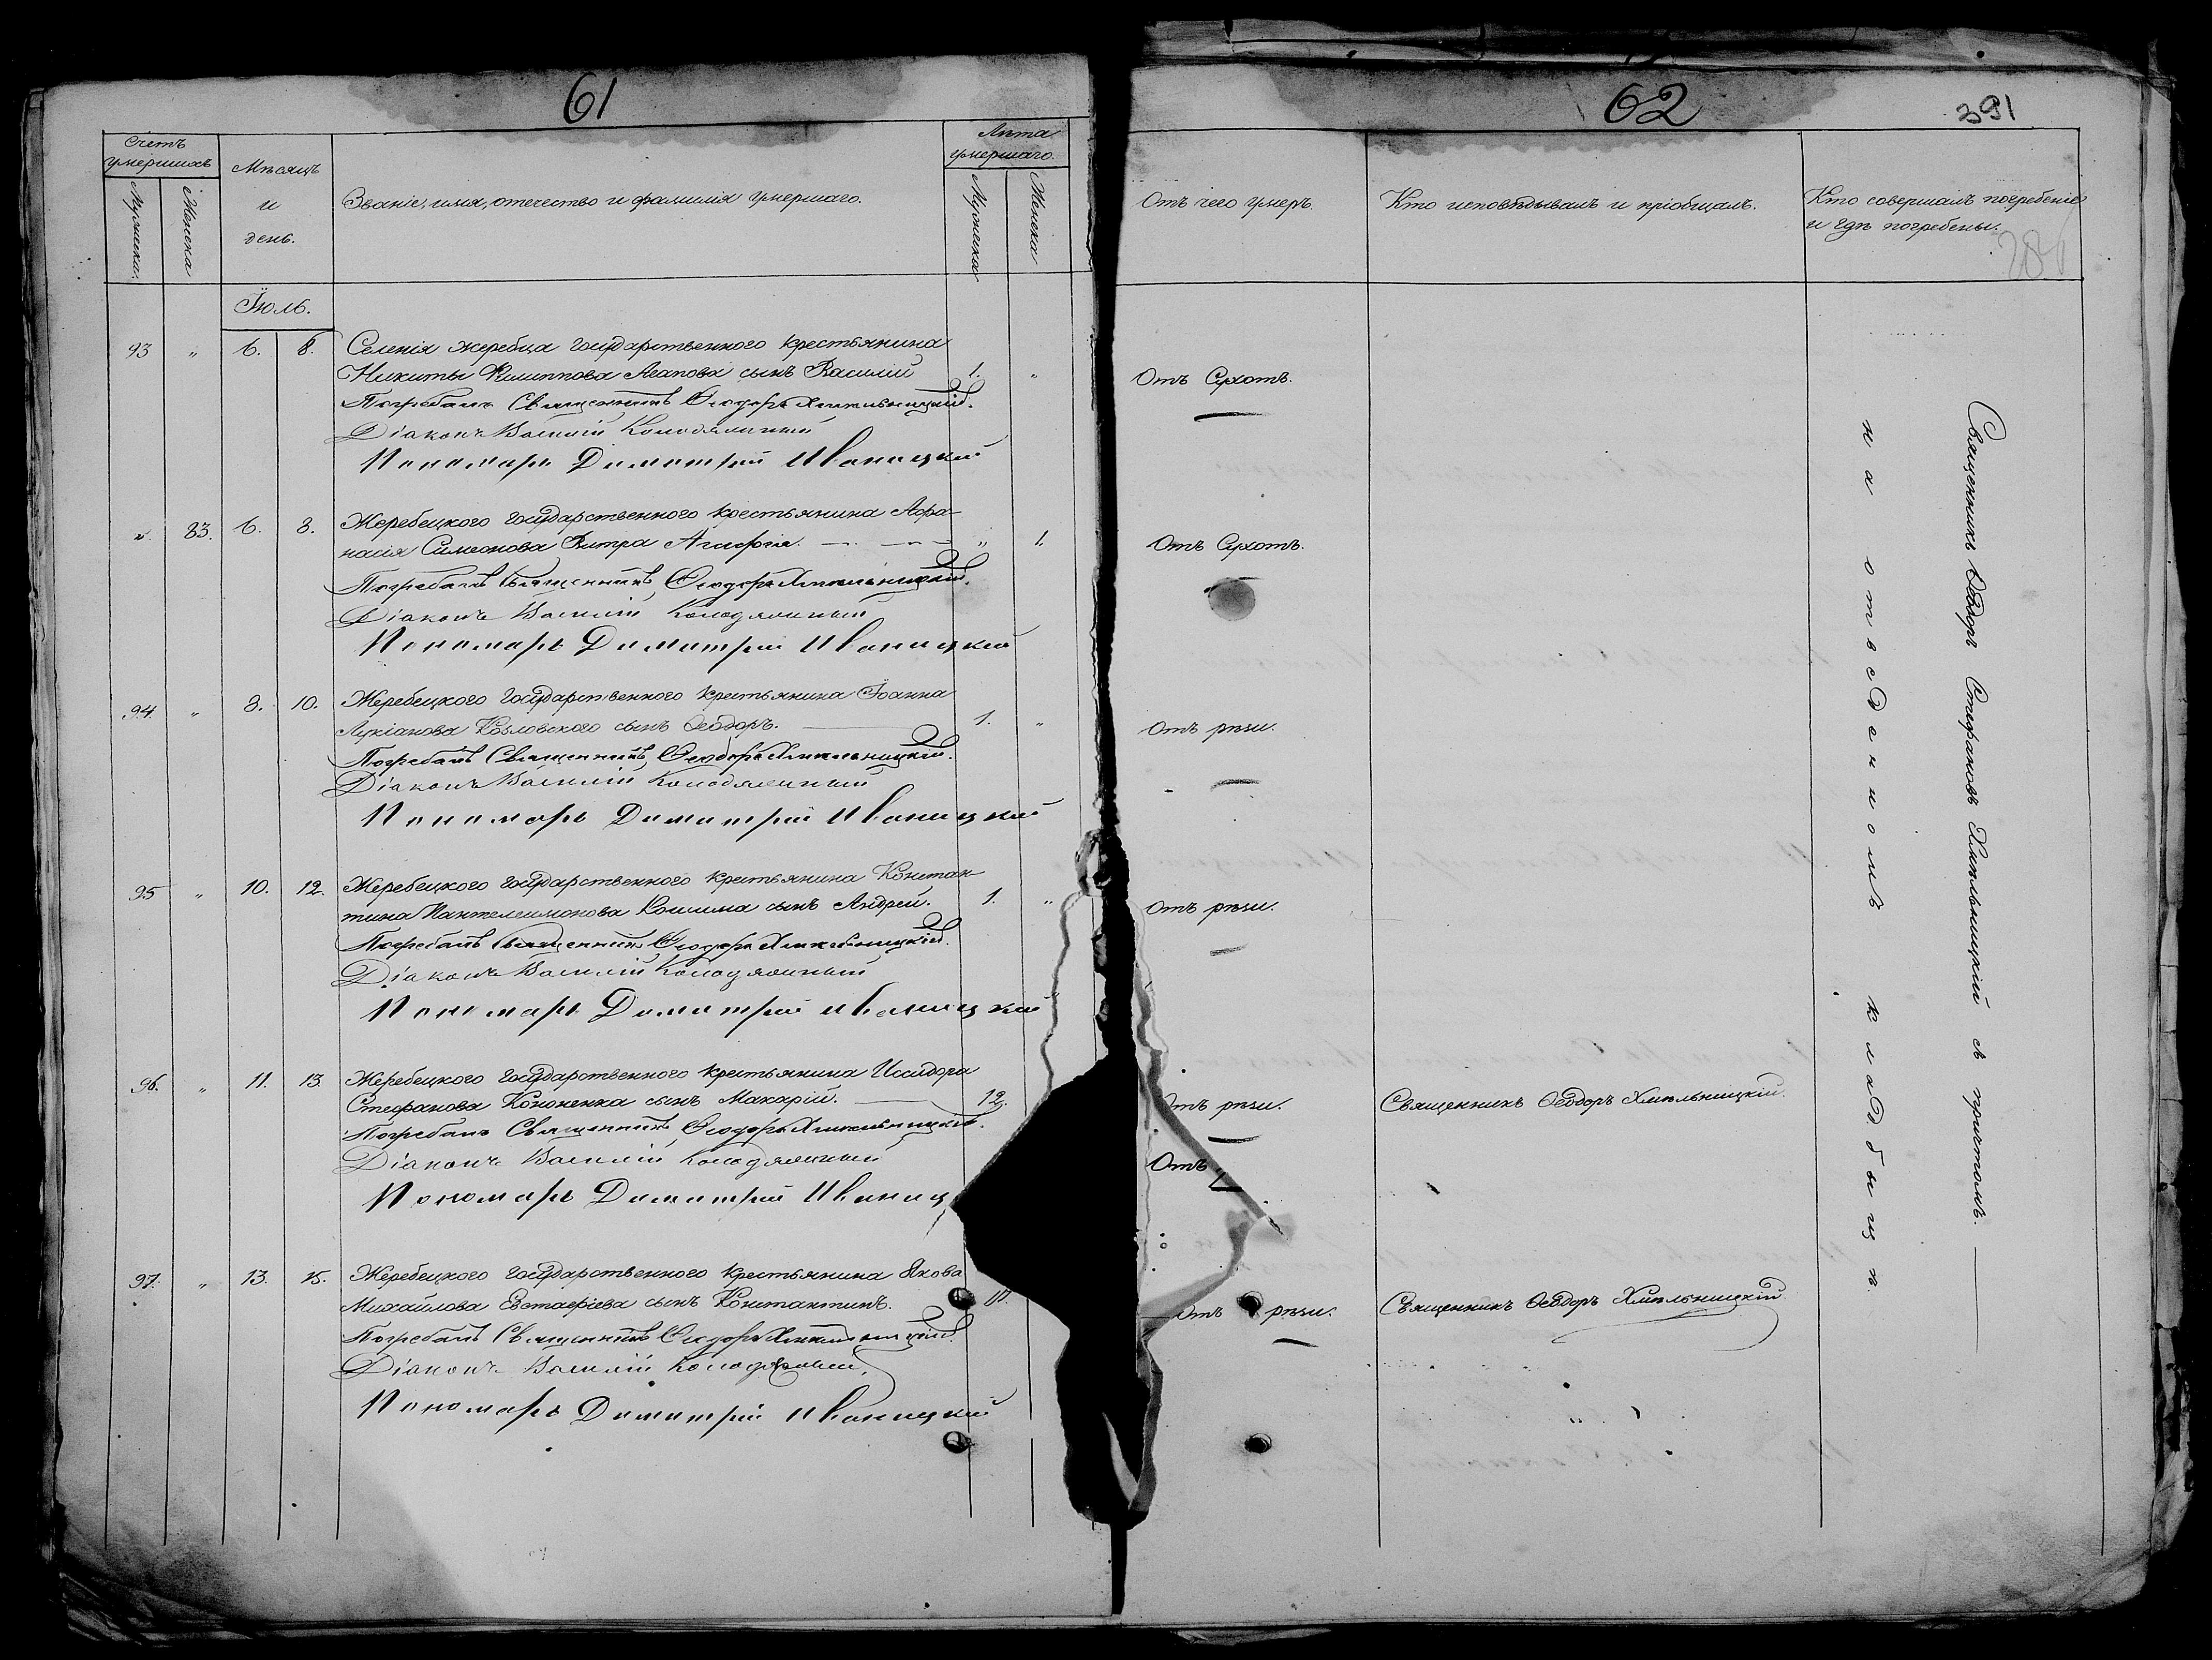 61
Счетъ умершихъ
Мужеска.
Женска
Мѣсяцъ
и
день.
Званіе, имя, отечество и фамилія умершаго.
Лѣта умершаго.
Мужеска
Женска
Іюль.
93 " 6. 8. Селенія Жеребца государственнаго крестьянина
Никиты Филиппова Агапова сынъ Василій 1. "
Погребалъ Священникъ Ѳеодоръ Хмѣльницкій.
Діаконъ Василій Колодяжный
Пономарь Димитрій Иваницкий
" 83. 6. 8. Жеребецкого государственного крестьянина Афа-
насія Симеонова " 1.
Погребалъ Священникъ Ѳеодоръ Хмѣльницкій.
Діаконъ Василій Колодяжный
Пономарь Димитрій Иваницкий
94. " 8. 10. Жеребецкого государственного крестьянина Іоанна
Лукіанова Козловского сынъ Ѳеодоръ. 1. "
Погребалъ Священникъ Ѳеодоръ Хмѣльницкій.
Діаконъ Василій Колодяжный
Пономарь Димитрій Иваницкий
95 " 10. 12. Жеребецкого государственного крестьянина Констан-
тина Пантелеимонова сынъ Андрей. 1. "
Погребалъ Священникъ Ѳеодоръ Хмѣльницкій.
Діаконъ Василій Колодяжный
Пономарь Димитрій Иваницкий
96. " 11. 13. Жеребецкого государственного крестьянина Исидора
Стефанова Кононенка сынъ Макарій. 12.
Погребалъ Священникъ Ѳеодоръ Хмѣльницкій.
Діаконъ Василій Колодяжный
Пономарь Димитрій Иваниц
97. " 13. 15. Жеребецкого государственного крестьянина Якова
Михайлова Евстафіева сынъ Константинъ.
Погребалъ Священникъ Ѳеодоръ Хмѣльницкій.
Діаконъ Василій Колодяжный
Пономарь Димитрій Иваницкий
62
391
Отъ чего умеръ.
Кто исповѣдывалъ и пріобщалъ.
Кто совершалъ погребеніе
и гдѣ погребены.
Отъ Сухотъ.
Отъ Сухотъ.
Отъ рѣзи.
Отъ рѣзи.
Отъ рѣзи.
Священникъ Ѳеодоръ Хмѣльницкій.
Отъ
Отъ рѣзи.
Священникъ Ѳеодоръ Хмѣльницкій
Священникъ Ѳеодоръ Стефановъ Хмѣльницкій съ причтомъ.
на отведенномъ кладбищѣ.